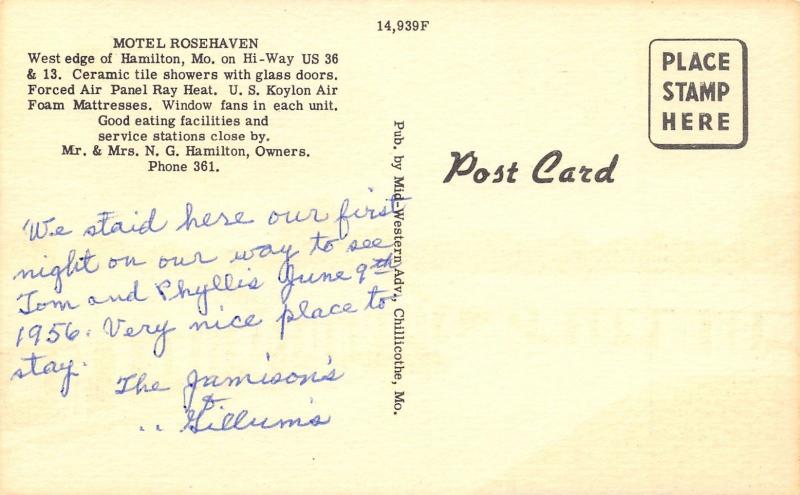 14,939F
MOTEL ROSEHAVEN
West edge of Hamilton, Mo. on Hi-Way US 36
& 13. Ceramic tile showers with glass doors.
Forced Air Panel Ray Heat. U. S. Koylon Air
Foam Mattresses. Window fans in each unit.
Good eating facilities and
service stations close by.
Mr. & Mrs. N. G. Hamilton, Owners.
Phone 361.
We staid here our first
night on our way to see
Tom and Phyllis June 9th
1956. Very nice place to
stay.
The Jamison's
&
" Gillum's
Pub. by Mid-Western Adv., Chillicothe, Mo.
Post Card
PLACE
STAMP
HERE